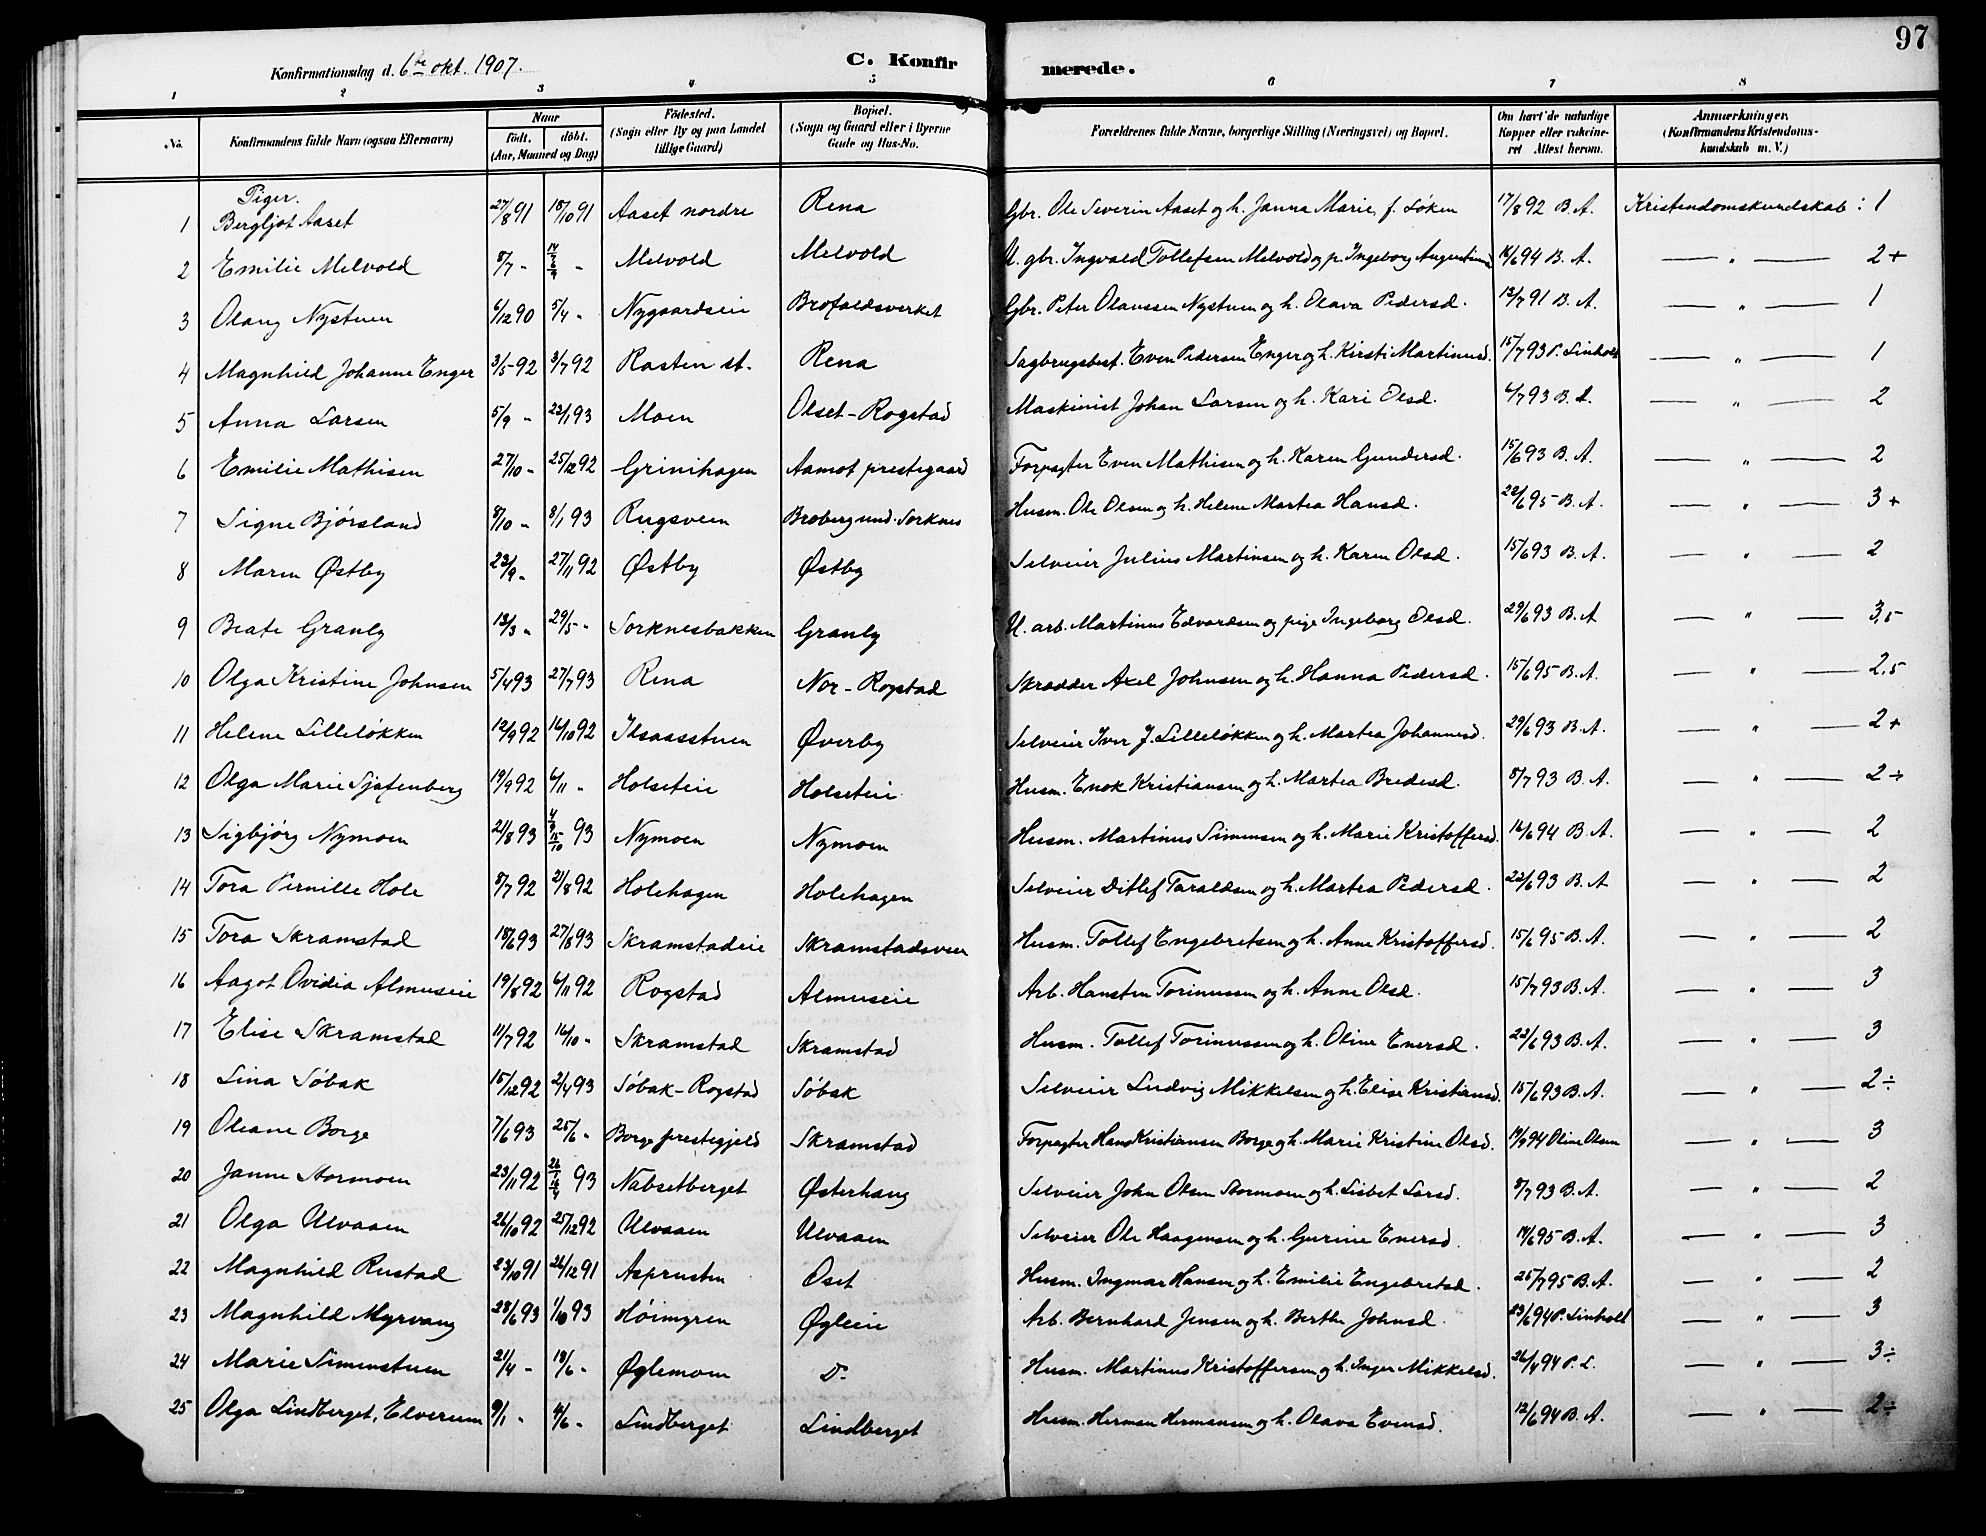 97
Konfirmationsdag d. 6te okt. 1907. C. Konfirmerede.
1 2 3 4 5 6 7 8
No. Konfirmandens fulde Navn (ogsaa Efternavn) Naar født. døbt. (Aar, Maaned og Dag) Fødested. (Sogn eller By og paa Landet tillige Gaard) Bopæl. (Sogn og Gaard eller i Byerne Gade og Hus-No. Forældrenes fulde Navne, borgerlige Stilling (Næringsvei) og Bopæl. Om havt de naturlige Kopper eller vakcineret Attest herom. Anmærkninger. (Konfirmandens Kristendomskundskab m. V.)
Piger.
1 Bergljot Aaset 27/8 91 18/10 91 Aaset nordre Rena Gbr. Ole Severin Aaset og h. Janna Marie, f. Løken 17/8 92 B. A. Kristendomskundskab : 1
2 Emilie Melvold 8/7 - Melvold Melvold U. gbr. Ingvald Tollefsen Melvold og p. Ingeborg Augustinusd 16/6 94 B. A. — " — 2+
3 Olaug Nystuen 6/12 90 5/4 - Nygaardseie Brofaldsverket Gbr. Peter Olaussen Nystuen og h. Olava Pedersd. 13/7 91 B. A. — " — 1
4 Magnhild Johanne Enger 3/5 92 3/7 92 Rasten st. Rena Sagbrugsbest. Even Pedersen Enger og h. Kirsti Martinusd. 15/7 93 P. Linholt — " — 1
5 Anna Larsen 5/9 - 22/1 93 Moen Olset-Rogstad Maskinist Johan Larsen og h. Kari Olsd. 6/7 93 B. A. — " — 2
6 Emilie Mathisen 27/10 - 25/12 92 Grinihagen Aamot prestegaard Forpagter Even Mathisen og h. Karen Gundersd. 15/6 93 B. A. — " — 2
7 Signe Bjørsland 8/10 - 8/1 93 Rugsveen Broberg und. Sorknes Husm. Ole Olsen og h. Helene Martea Hansd. 22/6 95 B. A. — " — 3+
8 Maren Østby 23/9 - 27/11 92 Østby Østby Selveier Julius Martinsen og h. Karen Olsd. 15/6 93 B. A. — " — 2
9 Beate Granly 13/3 " 29/5 - Sorknesbakken Granly U. arb. Martinus Edvardsen og pige Ingeborg Olsd. 29/6 93 B. A — " — 3,5
10 Olga Kristine Johnsen 5/4 93 27/7 93 Rena Nor-Rogstad Skrædder Axel Johnsen og h. Hanna Pedersd. 15/6 95 B. A. — " — 2,5
11 Helene Lilleløkken 12/9 92 16/10 92 Ilsaasstuen Øverby Selveier Iver J. Lilleløkken og h. Martea Johannesd. 29/6 93 B. A. — " — 2+
12 Olga Marie Sjøfenberg 19/9 92 6/11 - Holseteie Holseteie Husm. Enok Kristiansen og h. Martea Bredesd. 8/7 93 B. A. — " — 2÷
13 Sigbjørg Nymoen 21/8 93 4/9 15/10 93 Nymoen Nymoen Husm. Martinus Simensen og h. Marie Kristoffersd. 16/6 94 B. A. — " — 2
14 Tora Pernille Hole 8/7 92 21/8 92 Holehagen Holehagen Selveier Ditlef Taraldsen og h. Martea Pedersd. 22/6 93 B. A — " — 2
15 Tora Skramstad 18/6 93 27/8 93 Skramstadeie Skramstadsveen Husm. Tollef Engebretsen og h. Anne Kristoffersd. 15/6 95 B. A. — " — 2
16 Aagot Ovidia Almuseie 19/8 92 6/11 92 Rogstad Almuseie Arb. Hansten Torinussen og h. Anne Olsd. 15/7 93 B. A. — " — 3
17 Elise Skramstad 11/7 92 16/10 - Skramstad Skramstad Husm. Tollef Torinussen og h. Oline Enersd. 22/6 93 B. A. — " — 3
18 Lina Søbak 15/12 92 2/4 93 Søbak-Rogstad Søbak Selveier Ludvig Mikkelsen og h. Elise Kristiansd. 15/6 93 B. A. — " — 2÷
19 Oleane Borge 7/6 93 25/6 - Borge prestegjeld Skramstad Forpagter Hans Kristiansen Borge og h. Marie Kristine Olsd. 19/9 94 Oline Olsen — " — 3
20 Janne Stormoen 23/11 92 93 Nabsetberget Østerhaug Selveier John Olsen Stormoen og h. Lisbet Larsd. 8/7 93 B. A. — " — 2
21 Olga Ulvaaen 26/10 92 25/12 92 Ulvaaen Ulvaaen Selveier Ole Haagensen og h. Gurine Enersd. 19/6 95 B. A. — " — 3
22 Magnhild Rustad 23/10 91 26/12 91 Asprusten Oset Husm. Ingmar Hansen og h. Emilie Engebretsd. 25/7 95 B. A. — " — 2
23 Magnhild Myrvang 28/6 93 1/10 93 Høimyren Øgleie Arb. Bernhard Jensen og h. Berthe Johnsd. 23/6 94 P. Linholt — " — 3
24 Marie Simenstuen 21/4 - 18/6 - Øglemoen D- Husm. Martinus Kristoffersen og h. Inger Mikkelsd. 26/4 94 P. L. — " — 3÷
25 Olga Lindberget, Elverum 9/1 - 4/6 - Lindberget Lindberget Husm. Herman Hermansen og h. Olava Evensd. 12/6 94 B. A. — " — 2÷